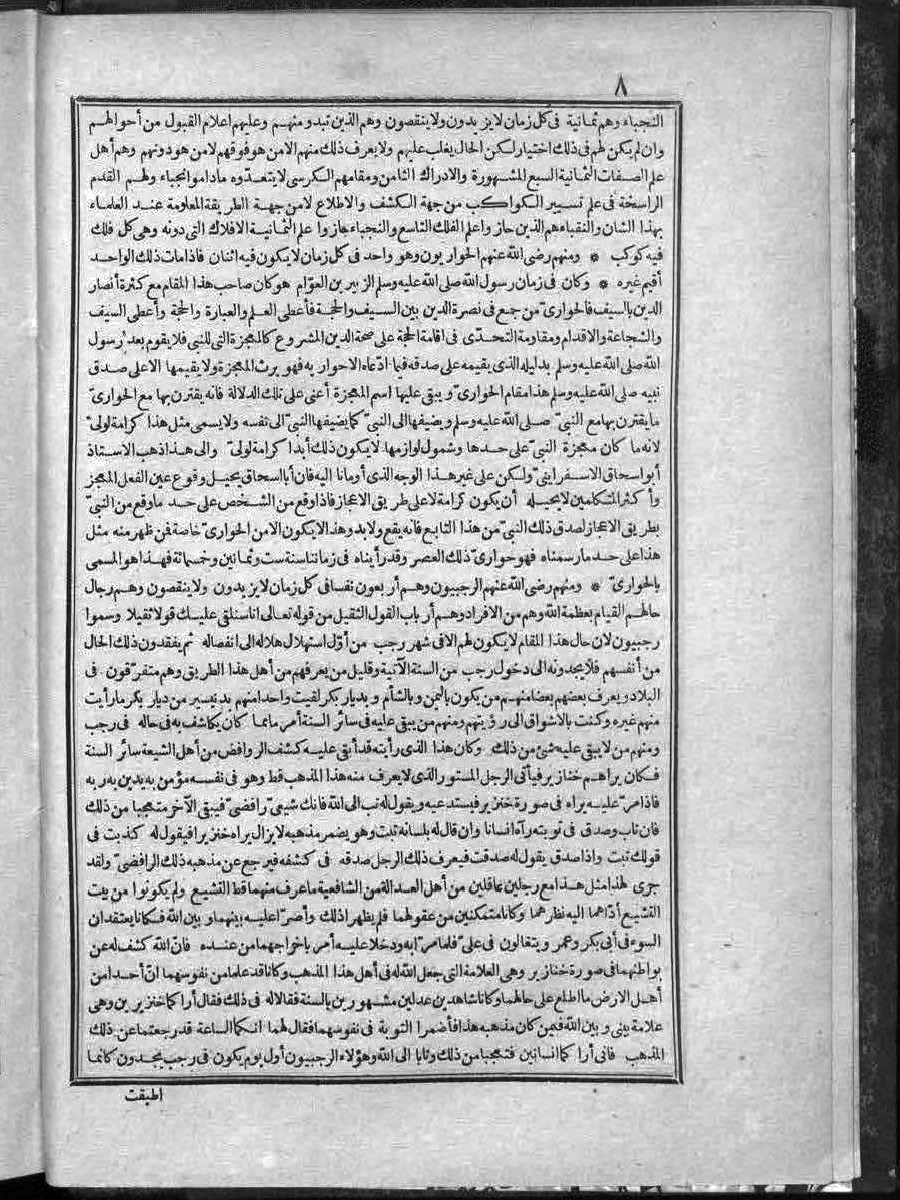 ٨
النجباء وهم ثمانية فى كل زمان لا يزيدون ولا ينقصون وهم الذين تبدو منهم وعليهم اعلام القبول من أحوالهم
وان لم يكن لهم فى ذلك اختيار لكن الحال يغلب عليهم ولا يعرف ذلك منهم الا من هو فوقهم لا من هو دونهم وهم أهل
علم الصفات الثمانية السبع المشهورة والادراك الثامن ومقامهم الكرسى لا يتعدّوه ماداموا نجباء ولهم القدم
الراسخة فى علم تسيير الكواكب من جهة الكشف والاطلاع لا من جهة الطريقة المعلومة عند العلماء
بهذا الشان والنقباء هم الذين حازوا علم الفلك التاسع والنجباء حازوا علم الثمانية الافلاك التى دونه وهى كل فلك
فيه كوكب * ومنهم رضى الله عنهم الحواريون وهو واحد فى كل زمان لا يكون فيه اثنان فاذا مات ذلك الواحد
أقيم غيره * وكان فى زمان رسول الله صلى الله عليه وسلم الزبير بن العوّام هو كان صاحب هذا المقام مع كثرة أنصار
الدين بالسيف فالحوارىّ من جمع فى نصرة الدين بين السيف والحجة فأعطى العلم والعبارة والحجة وأعطى السيف
والشجاعة والاقدام ومقاومة التحدّى فى اقامة الحجة على صحة الدين المشروع كالمعجزة التى للنبى فلا يقوم بعد رسول
الله صلى الله عليه وسلم بدليله الذى يقيمه على صدقه فيما ادّعاه الا حواريه فهو يرث المعجزة ولا يقيمها الا على صدق
نبيه صلى الله عليه وسلم هذا مقام الحوارىّ ويبقى عليها اسم المعجزة أعنى على تلك الدلالة فانه يقترن بها مع الحوارىّ
ما يقترن بها مع النبىّ صلى الله عليه وسلم ويضيفها الى النبىّ كما يضيفها النبىّ الى نفسه ولا يسمى مثل هذا كرامة لولىّ
لانه ما كان معجزة النبىّ على حدها وشمول لوازمها لا يكون ذلك أبدا كرامة لولىّ والى هذا ذهب الاستاذ
أبو اسحاق الاسفراينىّ ولكن على غير هذا الوجه الذى أومانا اليه فان أبا اسحاق يحيل وقوع عين الفعل المعجز
وأكثر المتكلمين لا يحيله أن يكون كرامة لا على طريق الاعجاز فاذا وقع من الشخص على حد ما وقع من النبىّ
بطريق الاعجاز لصدق ذلك النبىّ من هذا التابع فانه يقع ولا بد وهذا لا يكون الا من الحوارىّ خاصة فمن ظهر منه مثل
هذا على حد ما رسمناه فهو حوارىّ ذلك العصر وقد رأيناه فى زماننا سنة ست وثمانين وخمسمائة فهذا هو المسمى
بالحوارىّ * ومنهم رضى الله عنهم الرجبيون وهم أربعون نفسا فى كل زمان لا يزيدون ولا ينقصون وهم رجال
حالهم القيام بعظمة الله وهم من الافراد وهم أرباب القول الثقيل من قوله تعالى انا سنلقى عليك قولا ثقيلا وسموا
رجبيون لان حال هذا المقام لا يكون لهم الا فى شهر رجب من أوّل استهلال هلاله الى انفصاله ثم يفقدون ذلك الحال
من أنفسهم فلا يجدونه الى دخول رجب من السنة الآتية وقليل من يعرفهم من أهل هذا الطريق وهم متفرّقون فى
البلاد ويعرف بعضهم بعضا منهم من يكون باليمن وبالشأم وبديار بكر لقيت واحدا منهم بدنيسير من ديار بكر ما رأيت
منهم غيره وكنت بالاشواق الى رؤيتهم ومنهم من يبقى عليه فى سائر السنة أمر ما مما كان يكاشف به فى حاله فى رجب
ومنهم من لا يبقى عليه شئ من ذلك وكان هذا الذى رأيته قد أبقى عليه كشف الروافض من أهل الشيعة سائر السنة
فكان يراهم خنازير فيأتى الرجل المستور الذى لا يعرف منه هذا المذهب قط وهو فى نفسه مؤمن به يدين به ربه
فاذا مرّ عليه يراه فى صورة خنزير فيستدعيه ويقول له تب الى الله فانك شيعىّ رافضىّ فيبقى الآخر متعجبا من ذلك
فان تاب وصدق فى توبته رآه انسانا وان قال له بلسانه تبت وهو يضمر مذهبه لا يزال يراه خنزيرا فيقول له كذبت فى
قولك تبت واذا صدق يقول له صدقت فيعرف ذلك الرجل صدقه فى كشفه فيرجع عن مذهبه ذلك الرافضىّ ولقد
جرى لهذا مثل هذا مع رجلين عاقلين من أهل العدالة من الشافعية ما عرف منهما قط التشيع ولم يكونوا من بيت
التشيع أدّاهما اليه نظرهما وكانا متمكنين من عقولهما فلم يظهرا ذلك وأصرّا عليه بينهما وبين الله فكانا يعتقدان
السوء فى أبى بكر وعمر ويتغالون فى علىّ فلما مرّا به ودخلا عليه أمر باخراجهما من عنده فان الله كشف له عن
بواطنهما فى صورة خنازير وهى العلامة التى جعل الله له فى أهل هذا المذهب وكانا قد علما من نفوسهما انّ أحدا من
أهل الارض ما اطلع على حالهما وكانا شاهدين عدلين مشهورين بالسنة فقالا له فى ذلك فقال أراكما خنزيرين وهى
علامة بينى وبين الله فيمن كان مذهبه هذا فأضمرا التوبة فى نفوسهما فقال لهما انكما الساعة قد رجعتما عن ذلك
المذهب فانى أراكما انسانين فتعجبا من ذلك وتابا الى الله وهؤلاء الرجبيون أول يوم يكون فى رجب يجدون كانما
اطبقت